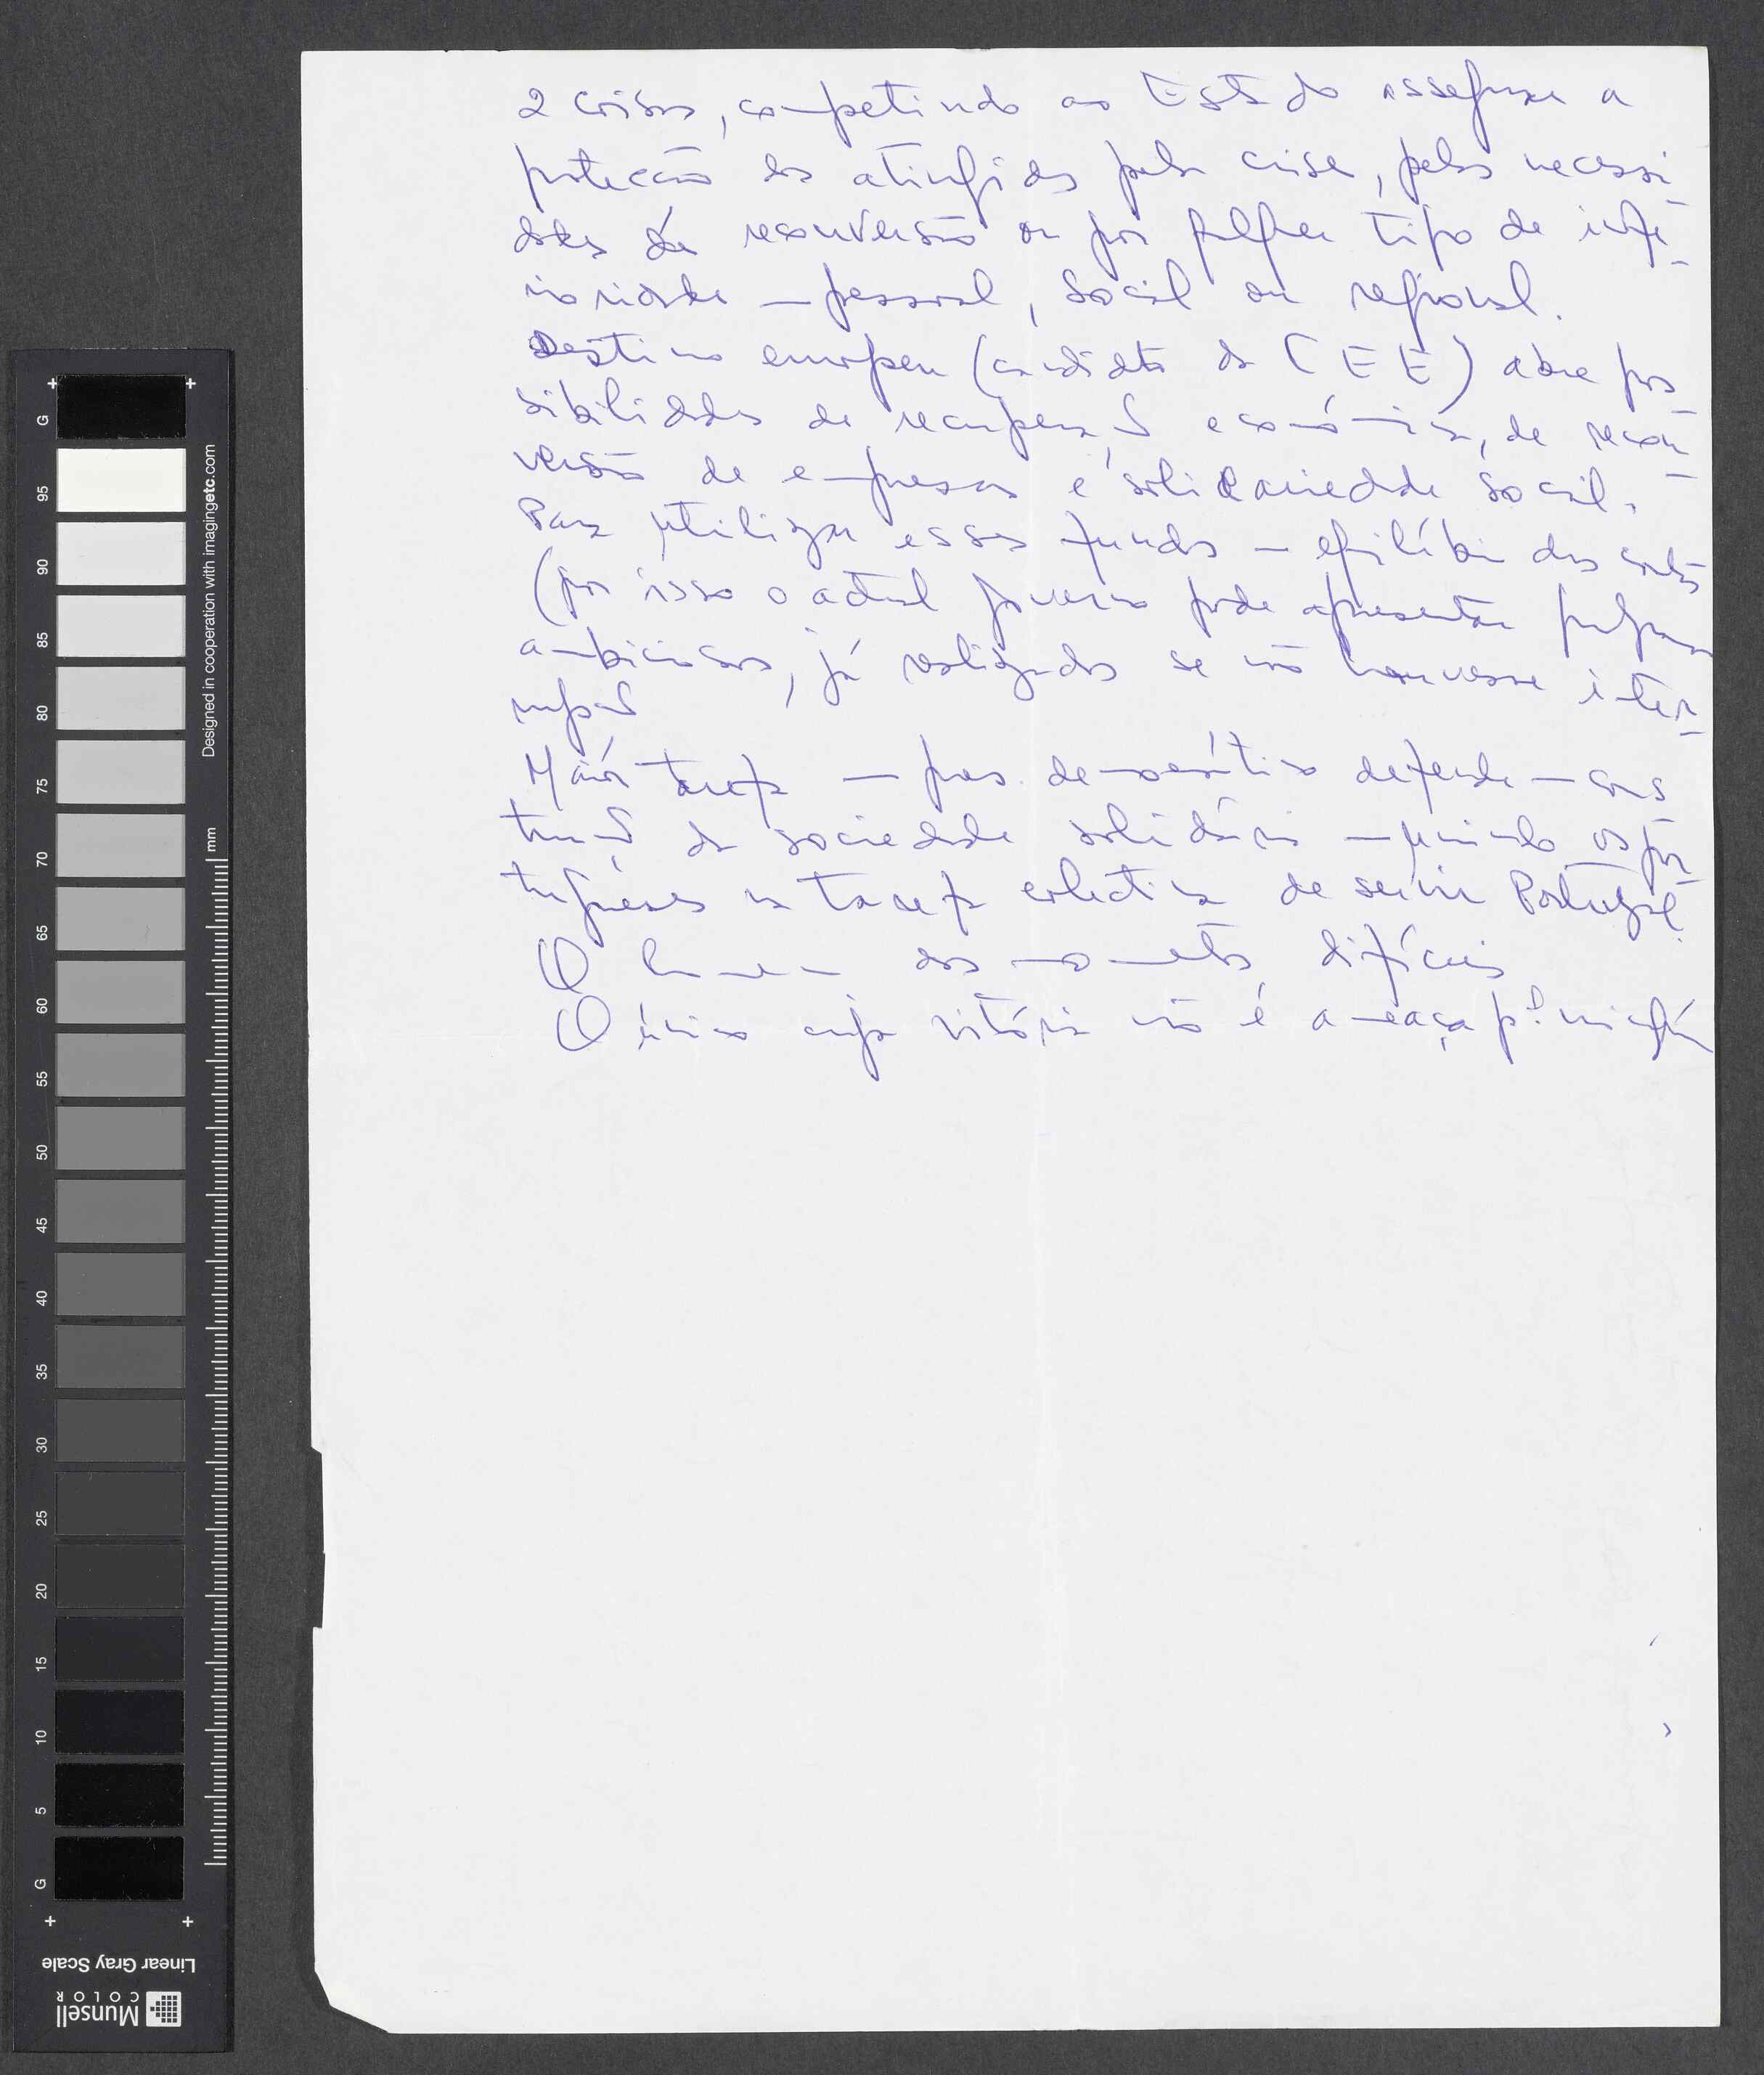 2 coisas, competindo ao Estado assegurar a
protecção dos atingidos pela crise, pelas necessi-
dades de reconversão ou por qualquer tipo de infe-
rioridade — pessoal, social ou regional.
Destino europeu (candidato da CEE) abre pos-
sibilidades de recuperação económica, de recon-
versão de empresas e solidariedade social.
Para utilizar esses fundos — equilíbrio das contas
(por isso o actual governo pode apresentar
ambiciosos, já realizados se não houvesse inter-
rupção
Maior tarefa — pres. democrático defende — cons-
trução da sociedade solidária — unindo os por-
tugueses na tarefa colectiva de servir Portugal.
O homem dos momentos difíceis
O único cuja vitória não é ameaça pª ninguém
Designed in cooperation with imagingetc.com
mm
G
95
90
85
80
75
70
65
60
55
50
45
40
35
30
25
20
15
10
5
G
Linear Gray Scale
Munsell
COLOR